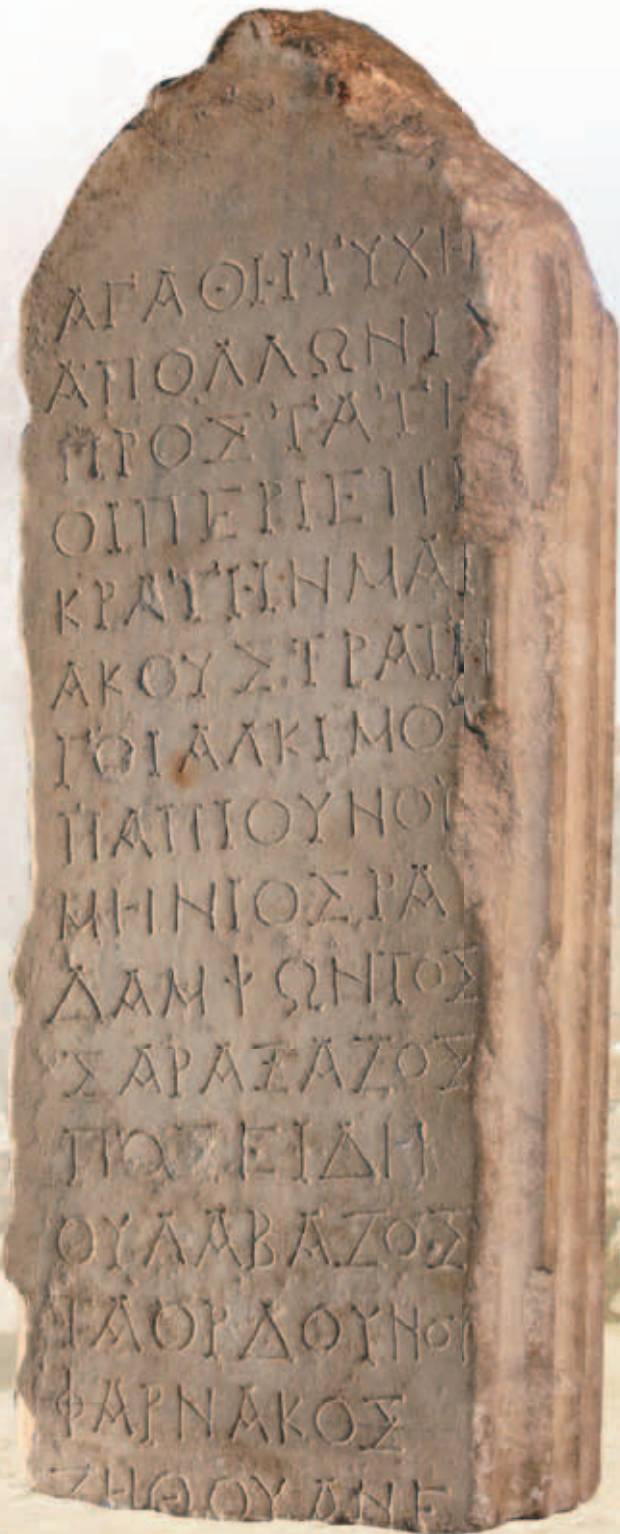 ΑΓΑΘΗΙΤΥΧΗ
ΑΠΟΛΛΩΝΙ
ΠΡΟΣΤΑΤΗ
ΟΙΠΕΡΙΕΠΙ
ΚΡΑΤΗΝΜΑΙ
ΑΚΟΥΣΤΡΑΤΗ
ΓΟΙΑΛΚΙΜΟΥ
ΠΑΠΠΟΥΝΟΥ
ΜΗΝΙΟΣΡΑ
ΔΑΜΨΩΝΤΟΣ
ΣΑΡΑΞΑΖΟΣ
ΠΟΣΕΙΔΗ
ΟΥΛΑΒΑΖΟΣ
ΓΑΟΡΔΟΥΝΟΥ
ΦΑΡΝΑΚΟΣ
ΖΗΘΟΥΑΝΕ